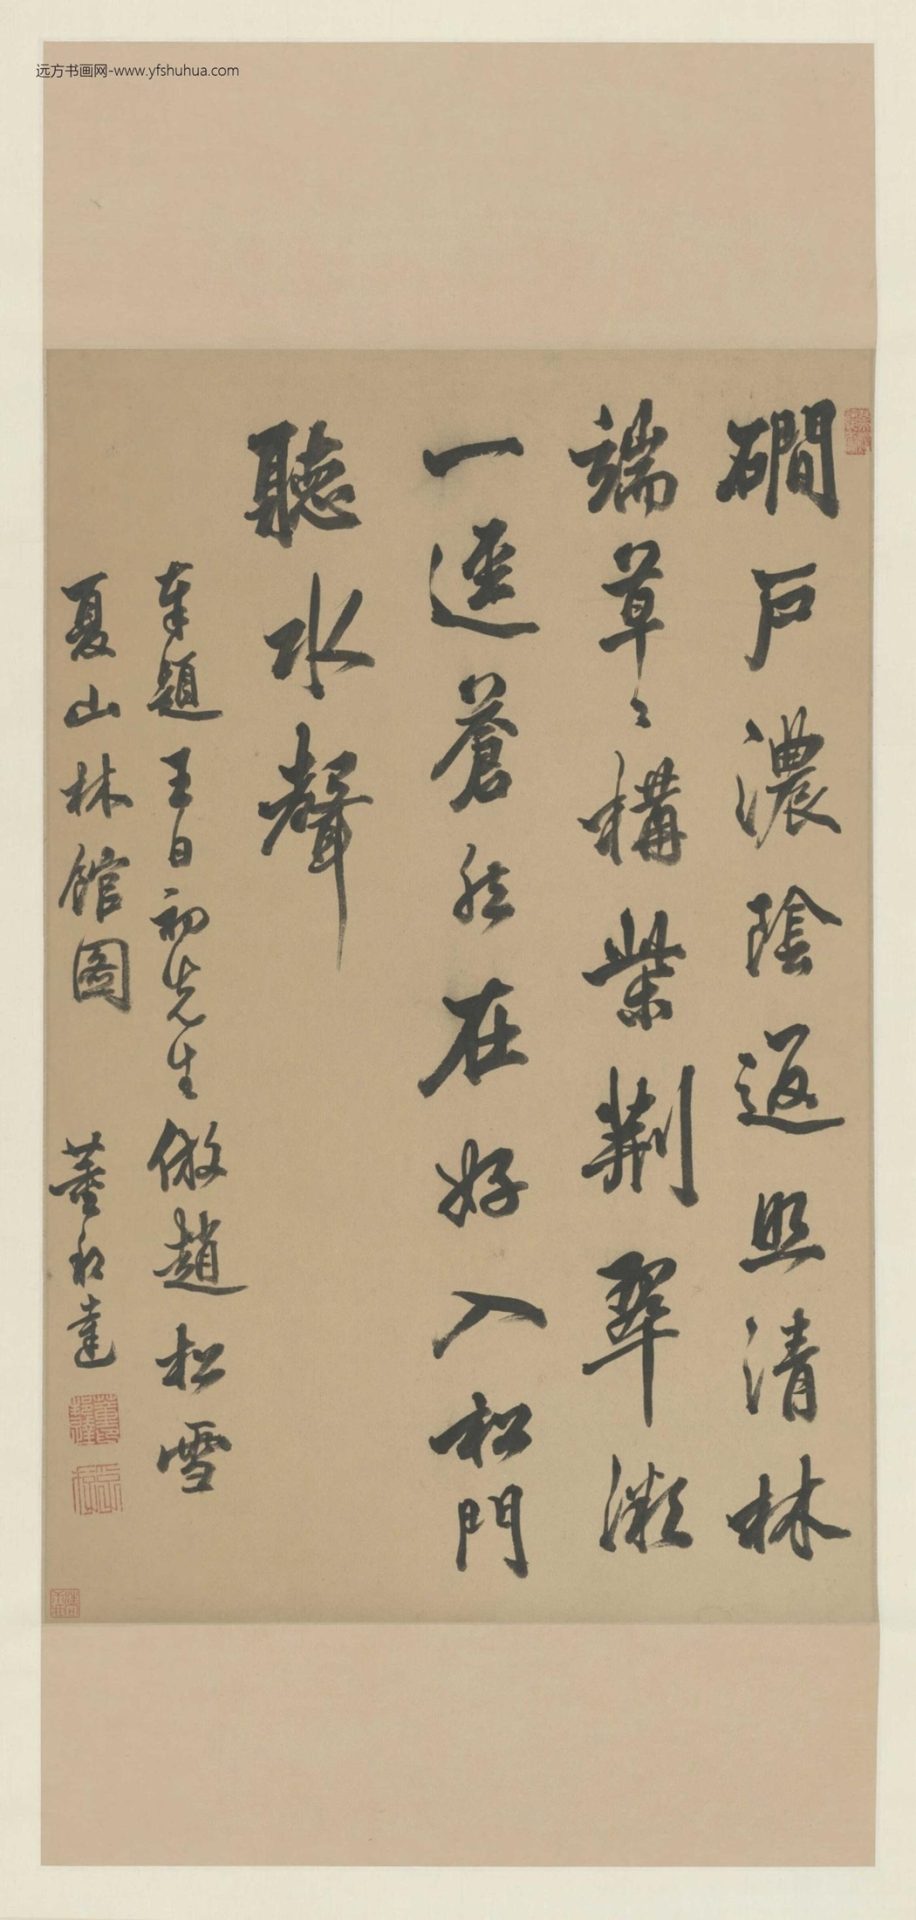 磵戶濃陰返照清林
端草〻構柴荊翠漵
一逕蒼然在好入松門
聽水聲
奉題王日初先生倣趙松雪
夏山林館圖 董邦達
远方书画网-www.yfshuhua.com